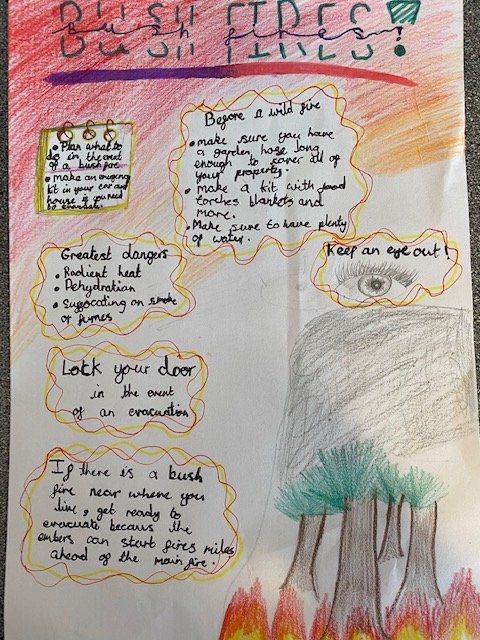 BUSH FIRES!
bush fires!
Before a wild fire
• make sure you have
a garden hose long
enough to cover all of
your property.
• make a kit with food
torches blankets and
more.
• Make sure to have plenty
of water.
• Plan what to
do in the event
of a bush fire
• make an emergency
kit in your car and
house if you need
to evacuate.
Keep an eye out!
Greatest dangers
• Radient heat
• Dehydration
• Suffocating on smoke
or fumes
Lock your door
in the event
of an evacuation
If there is a bush
fire near where you
live, get ready to
evacuate becaus the
embers can start fires miles
ahead of the main fire.